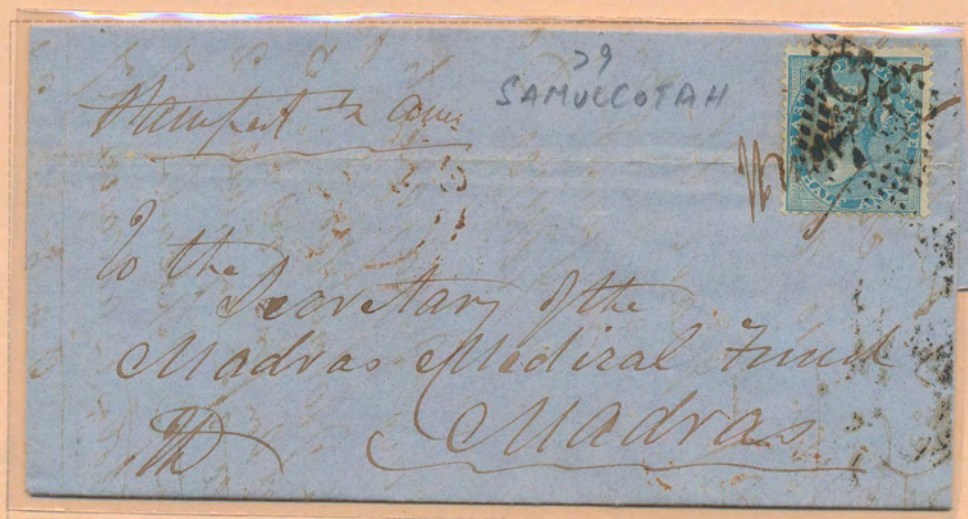 29
SAMULCOTAH
Stampeed ½ Anna
To the
Secretary of the
Madras Medical Fund
Madras